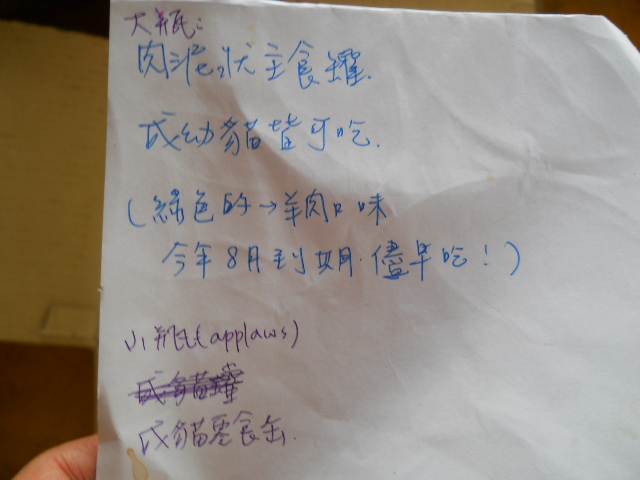 大瓶:
肉泥狀主食罐.
成幼貓皆可吃.
(綠色的→羊肉口味
今年8月到期.儘早吃!)
小瓶(applaws)
成貓罐
成貓零食缶.